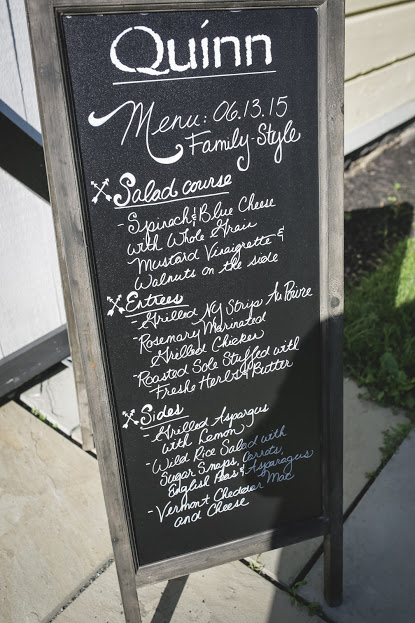 Quinn
Menu: 06.13.15
Family-Style
Salad course
- Spinach & Blue Cheese
with Whole Grain
- Mustard Vinaigrette &
Walnuts on the side
Entrees
- Grilled NY Strip Au Poivre
- Rosemary Marinated
Grilled Chicken
- Roasted Sole Stuffed with
Fresh Herbs & Butter
Sides
- Grilled Asparagus
with Lemon
- Wild Rice Salad with
Sugar Snaps, Carrots,
English Peas & Asparagus
- Vermont Cheddar Mac
and Cheese